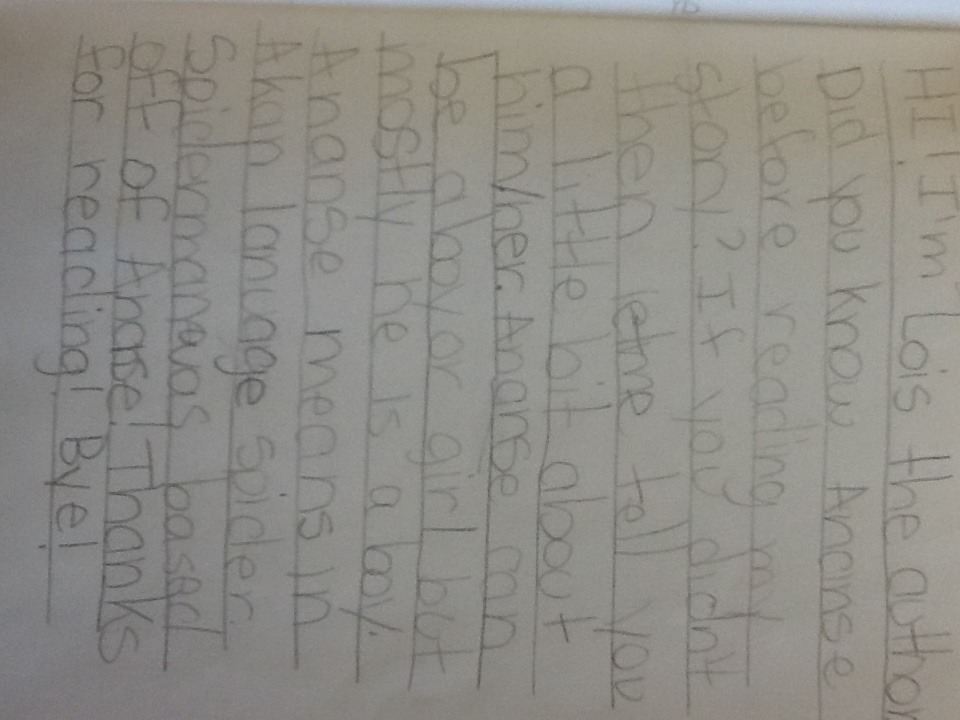 HI! I'm Lois the author
Did you know Ananse
before reading my
story? If you didn't
then letme tell you
a little bit about
him/her. Ananse can
be a boy or girl but
mostly he is a boy.
Ananse means in
Akan lanuage spider.
Spiderman was based
off of Anase! Thanks
for reading! Bye!